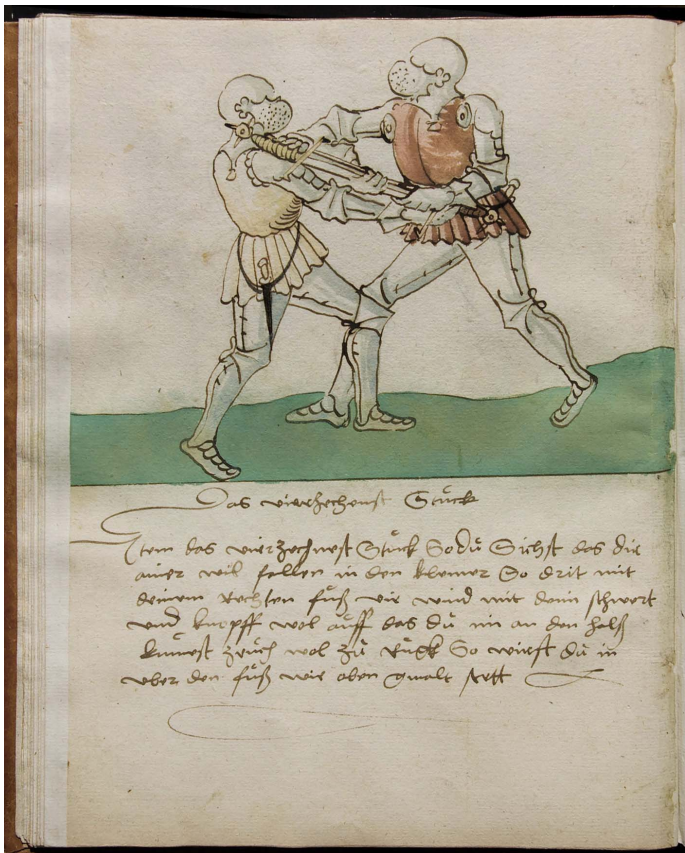 Das vierzechenst Stuck
Item das vierzechnest Stuck So du Sichst das dir
ainer wil fallen in den So drit mit
deinem Rechten fuß vir wind mit deim schwert
und knopff wol auff das du im an den halß
kumest zeuch wol zu Ruck So wirfst du in
uber den fuß wie oben gmalt stett